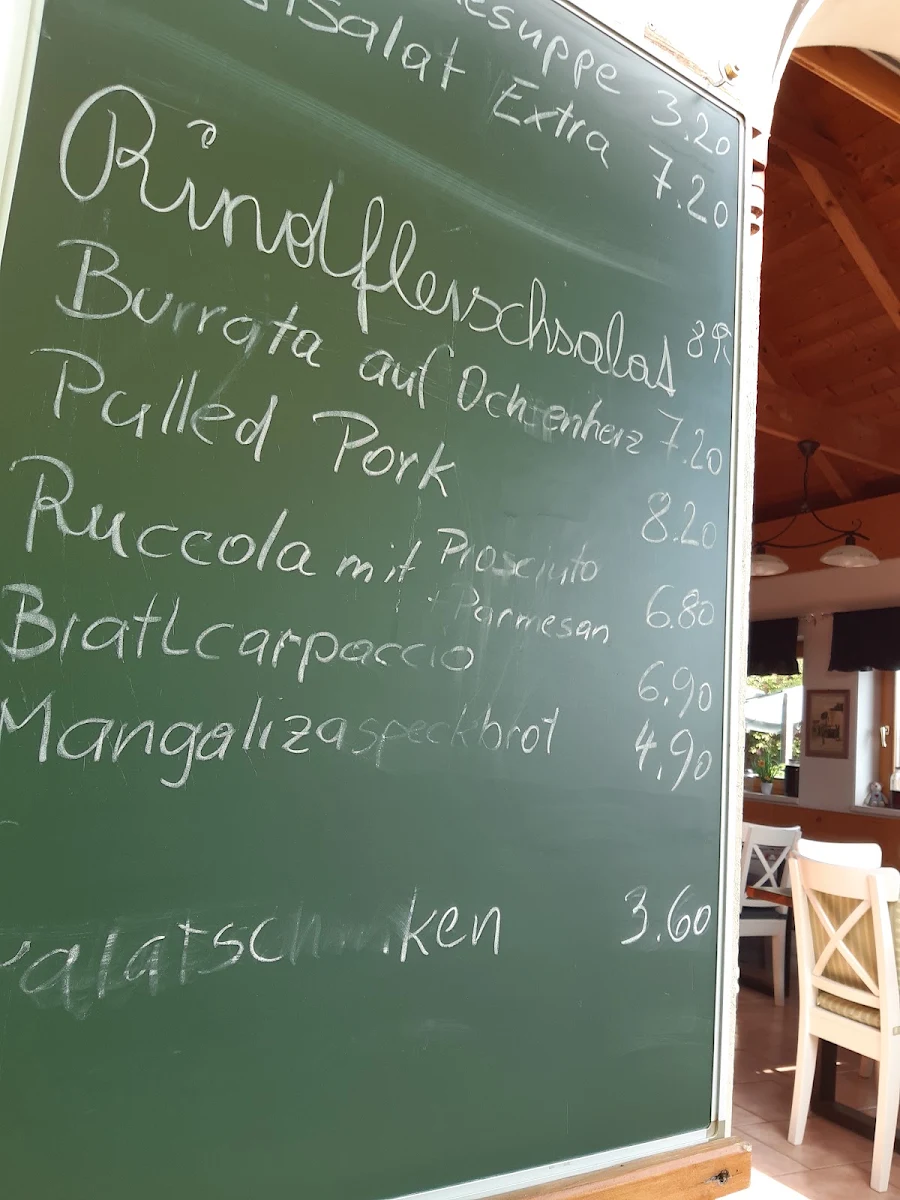 esuppe 3.20
tsalat Extra 7.20
Rindfleischsalat
Burrata auf Ochsenherz 7.20
Pulled Pork 8.20
Ruccola mit Prosciuto
+ Parmesan 6.80
Bratlcarpaccio 6.90
Mangalizaspeckbrot 4.90
alatschinken 3.60